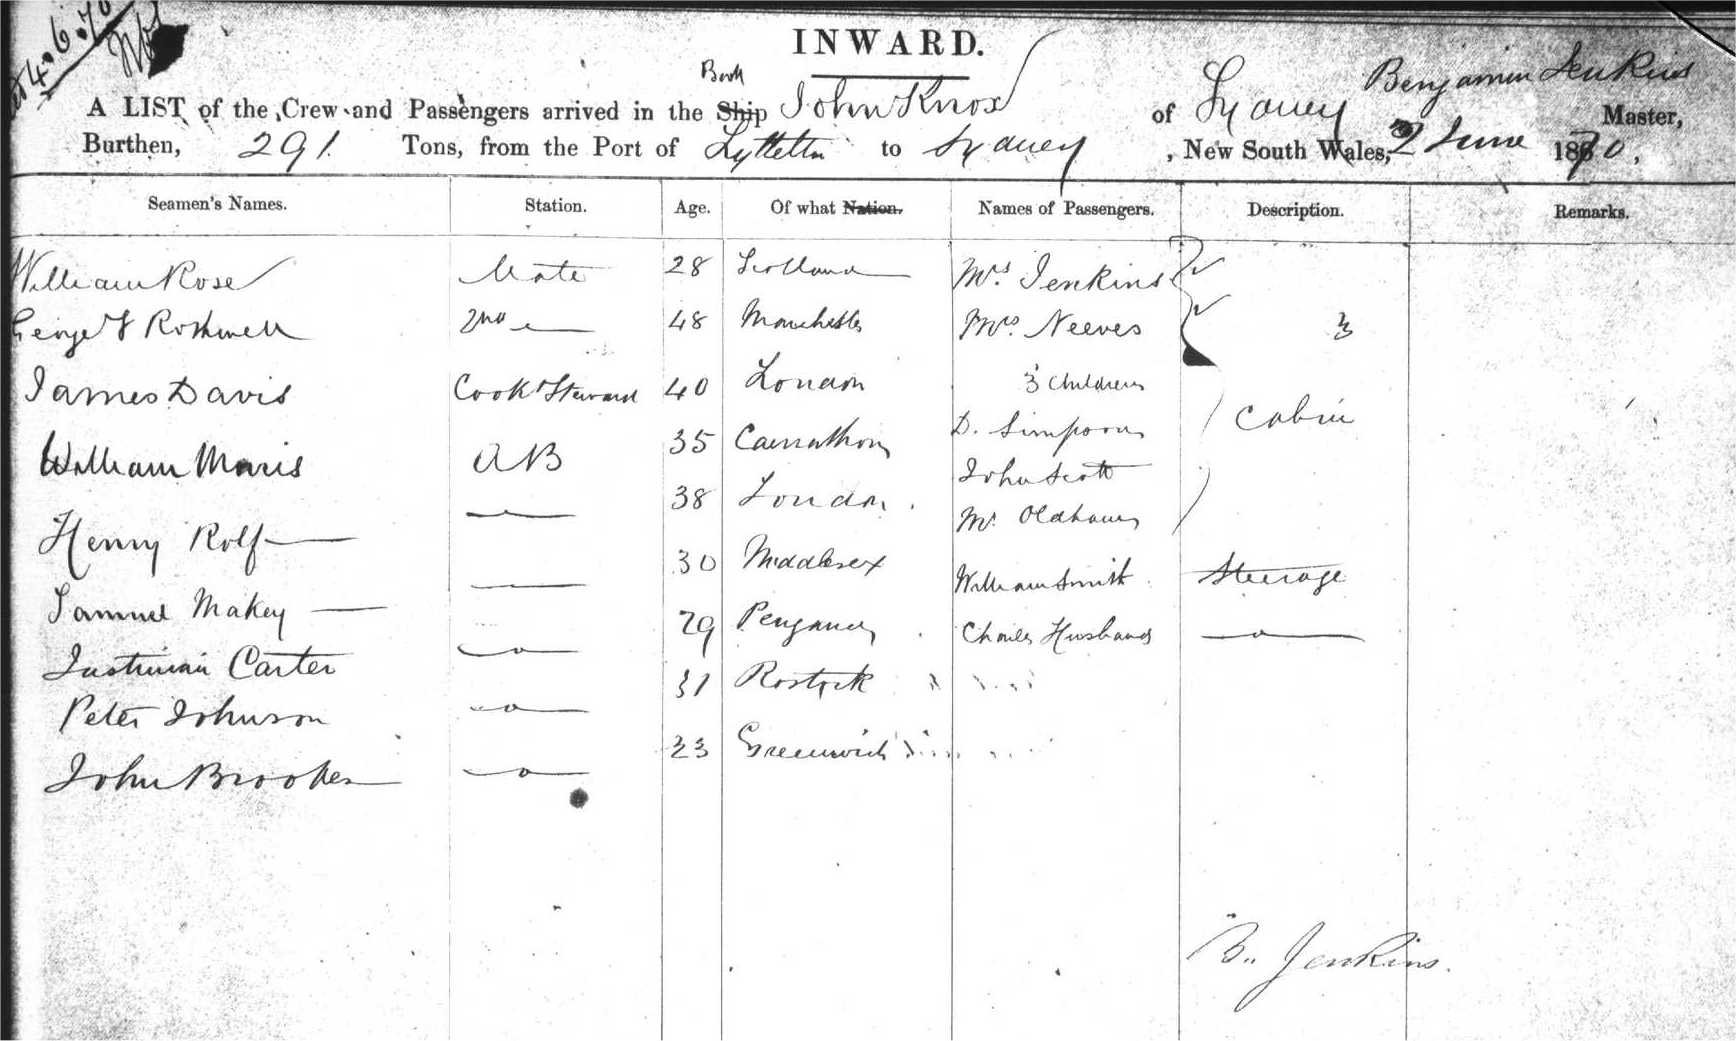 4.6.70
INWARD.
Bark
A LIST of the Crew and Passengers arrived in the Ship John Knox of Sydney Benjamin Jenkins Master,
Burthen, 291 Tons, from the Port of Lyttelton to Sydney, New South Wales, 2 June 1870,
Seamen's Names. Station. Age. Of what Nation. Names of Passengers. Description. Remarks.
William Rose Mate 28 Scotland Mrs. Jenkins
George Rothwell 2nd 48 Manchester Mrs. Neeves 3
James Davis Cook & Steward 40 London 3 Children
William Maris AB 35 Carnathon D. Simpson Cabin
Henry Rolf 38 London John Scott
Mr. Oldham
Samuel Makey 30 Middlesex William Smith Steerage
Carter 29 Charles Husband
Peter Johnson 31 Rostock
John Brookes 23 Greenwich
B. Jenkins.